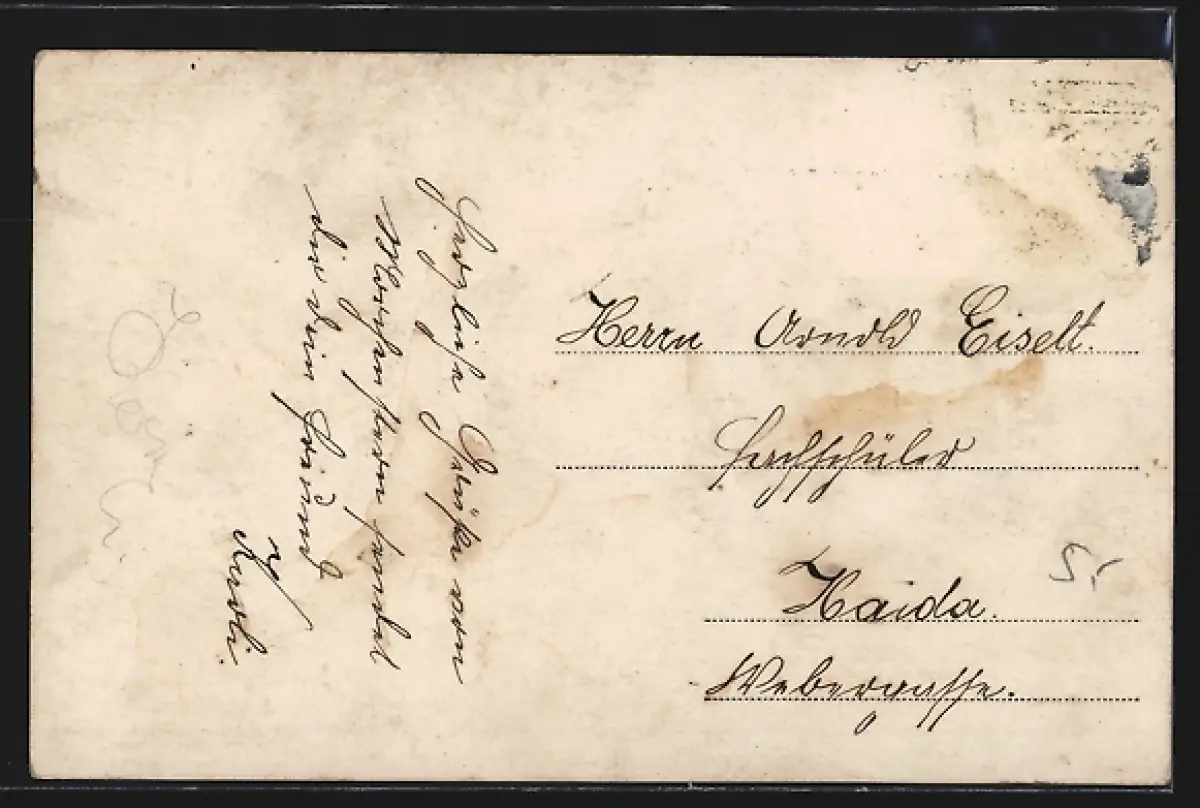 Herzliche Grüße vom
Morgenstern sendet
dir dein Freund
Karli.
Herrn Arnold Eiselt.
Fachschüler
Haida.
Webergasse.
5,-